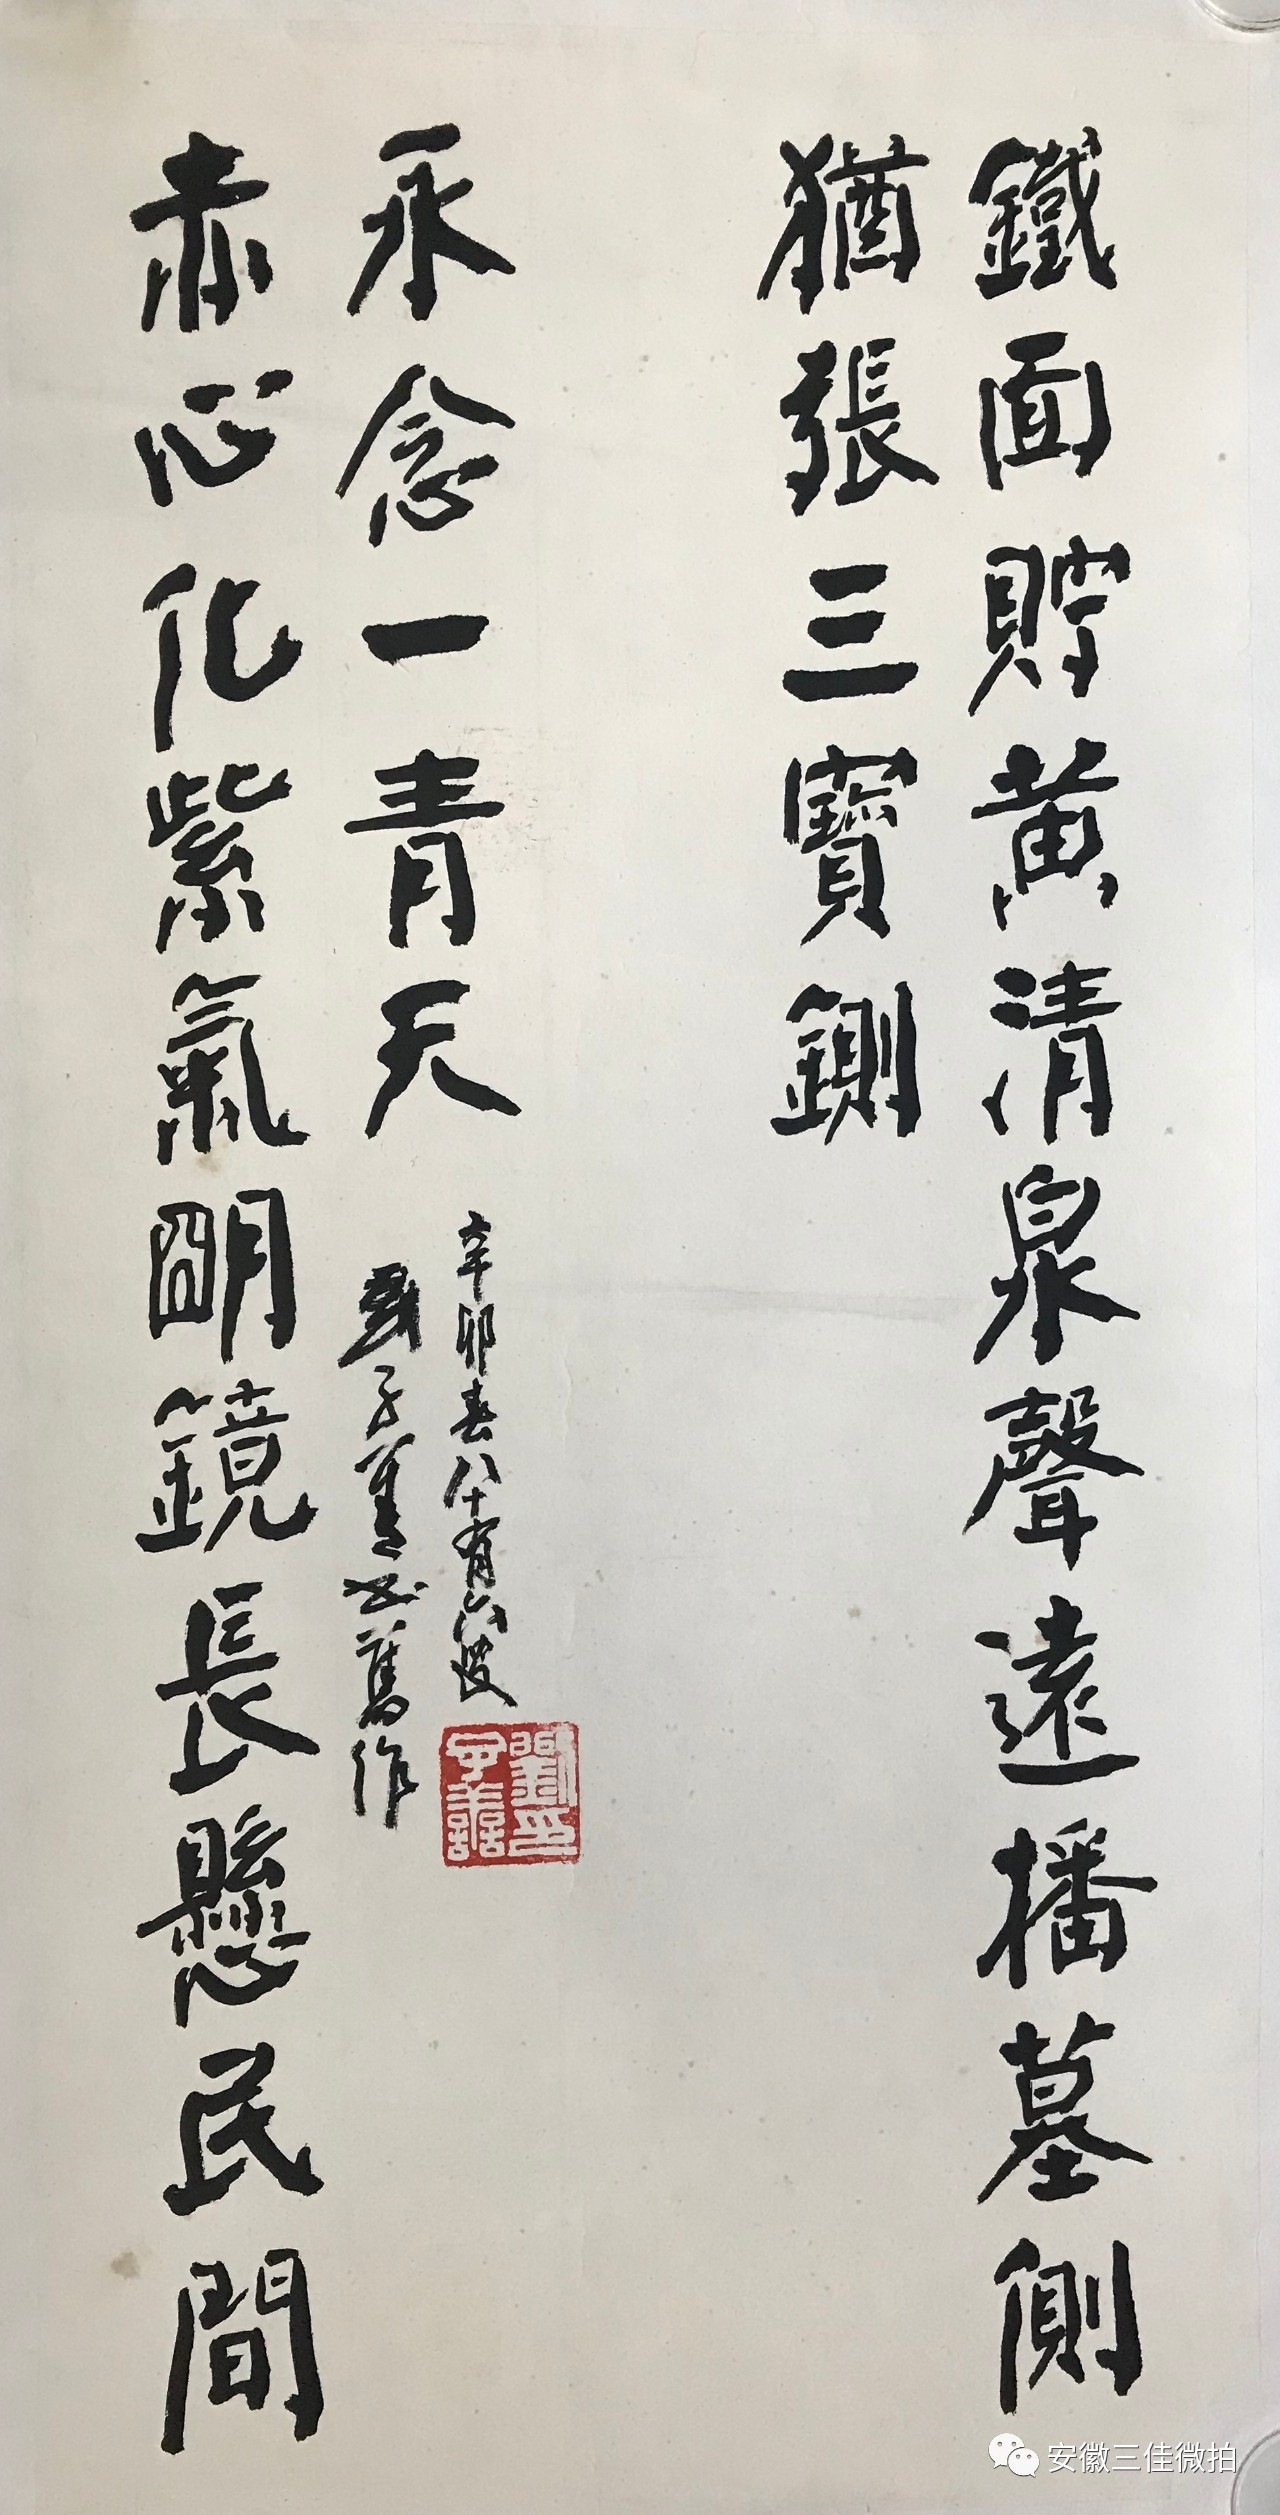 鐵面貯黃清泉聲遠播墓側
猶張三寶鍘
赤心化紫氣朙鏡長懸民間
永念一青天
辛卯春八十有六叟
劉子善書舊作
劉印子善
安徽三佳微拍